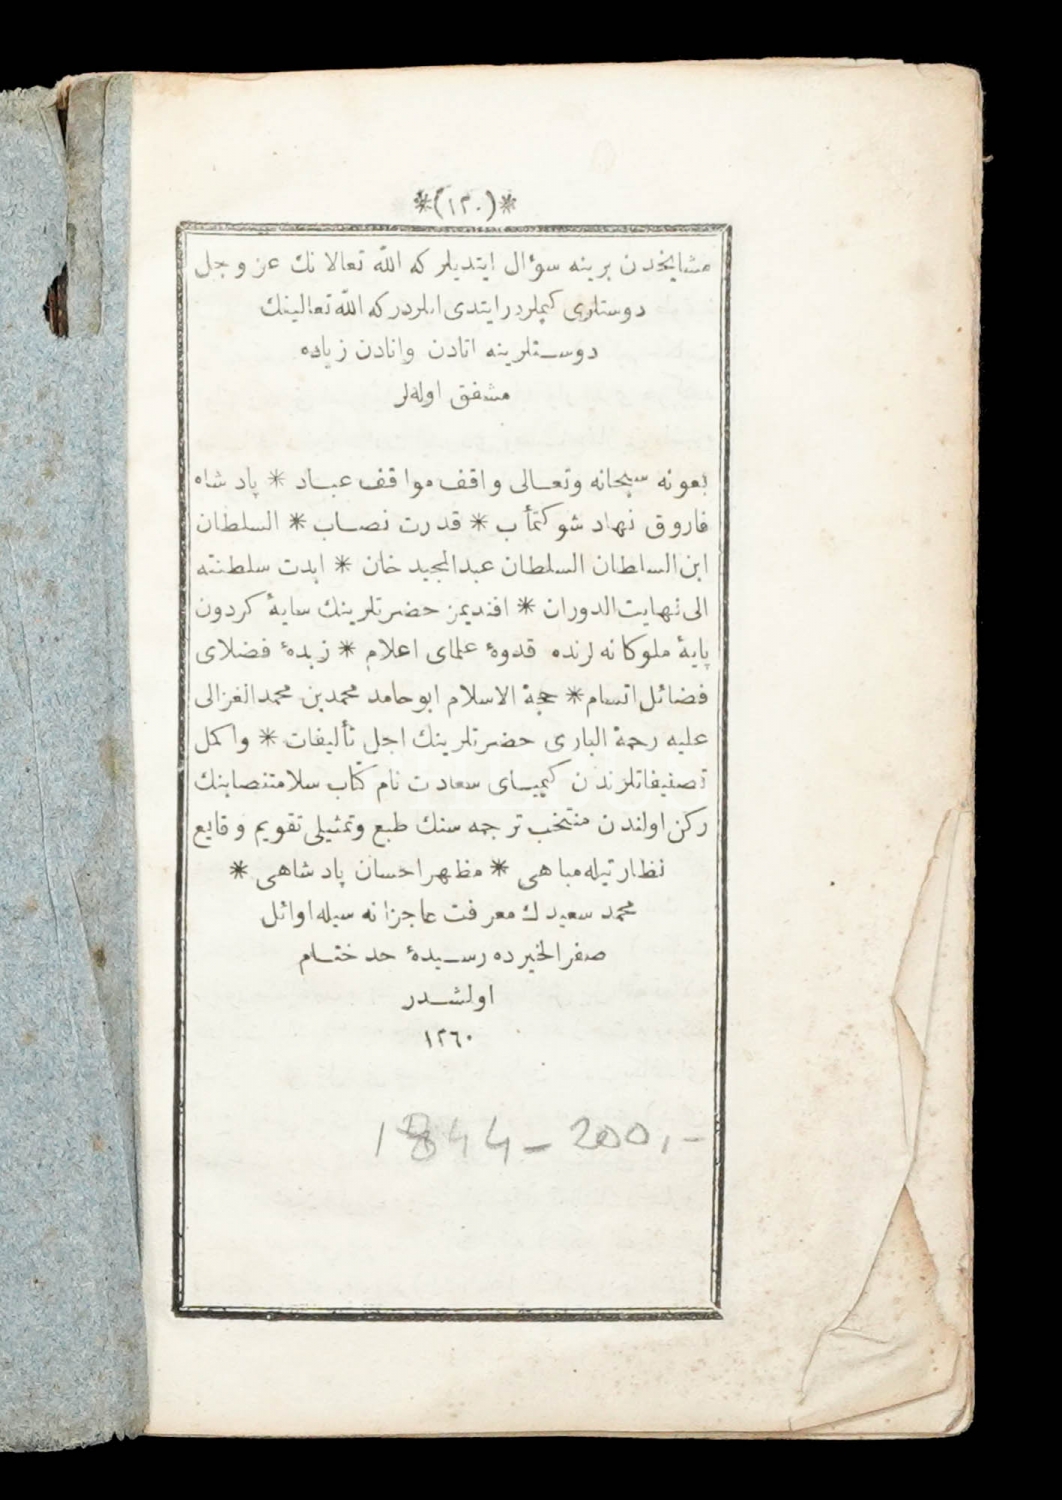 *(١٣٠)*
مشایخدن برینه سؤال ایتدیلر که الله تعالا نك عز و جل
دوستلری کیملردر ایتدی انلردر که الله تعالینك
دوستلرینه اتادن وانادن زیاده
مشفق اوله لر
بعونه سبحانه وتعالی واقف مواقف عباد * پادشاه
فاروق نهاد شوکتمأب * قدرت نصاب * السلطان
ابن السلطان السلطان عبدالمجید خان * ابدت سلطنته
الی نهایت الدوران * افندیمز حضرتلرینك سایۀ کردون
پایۀ ملوکانه لرنده قدوۀ علمای اعلام * زبدۀ فضلای
فضائل اتسام * حجة الاسلام ابو حامد محمد بن محمد الغزالی
علیه رحمة الباری حضرتلرینك اجل تألیفات * واکمل
تصنیفاتلرندن کیمیای سعادت نام کتاب سلامتنصابنك
رکن اولندن منتخب ترجمه سنك طبع وتمثیلی تقویم وقایع
نظارتیله مباهی * مظهر احسان پادشاهی *
محمد سعیدك معرفت عاجزانه سیله اوائل
صفر الخیرده رسیدۀ حد ختام
اولشدر
١٢٦٠
1844 - 200,-